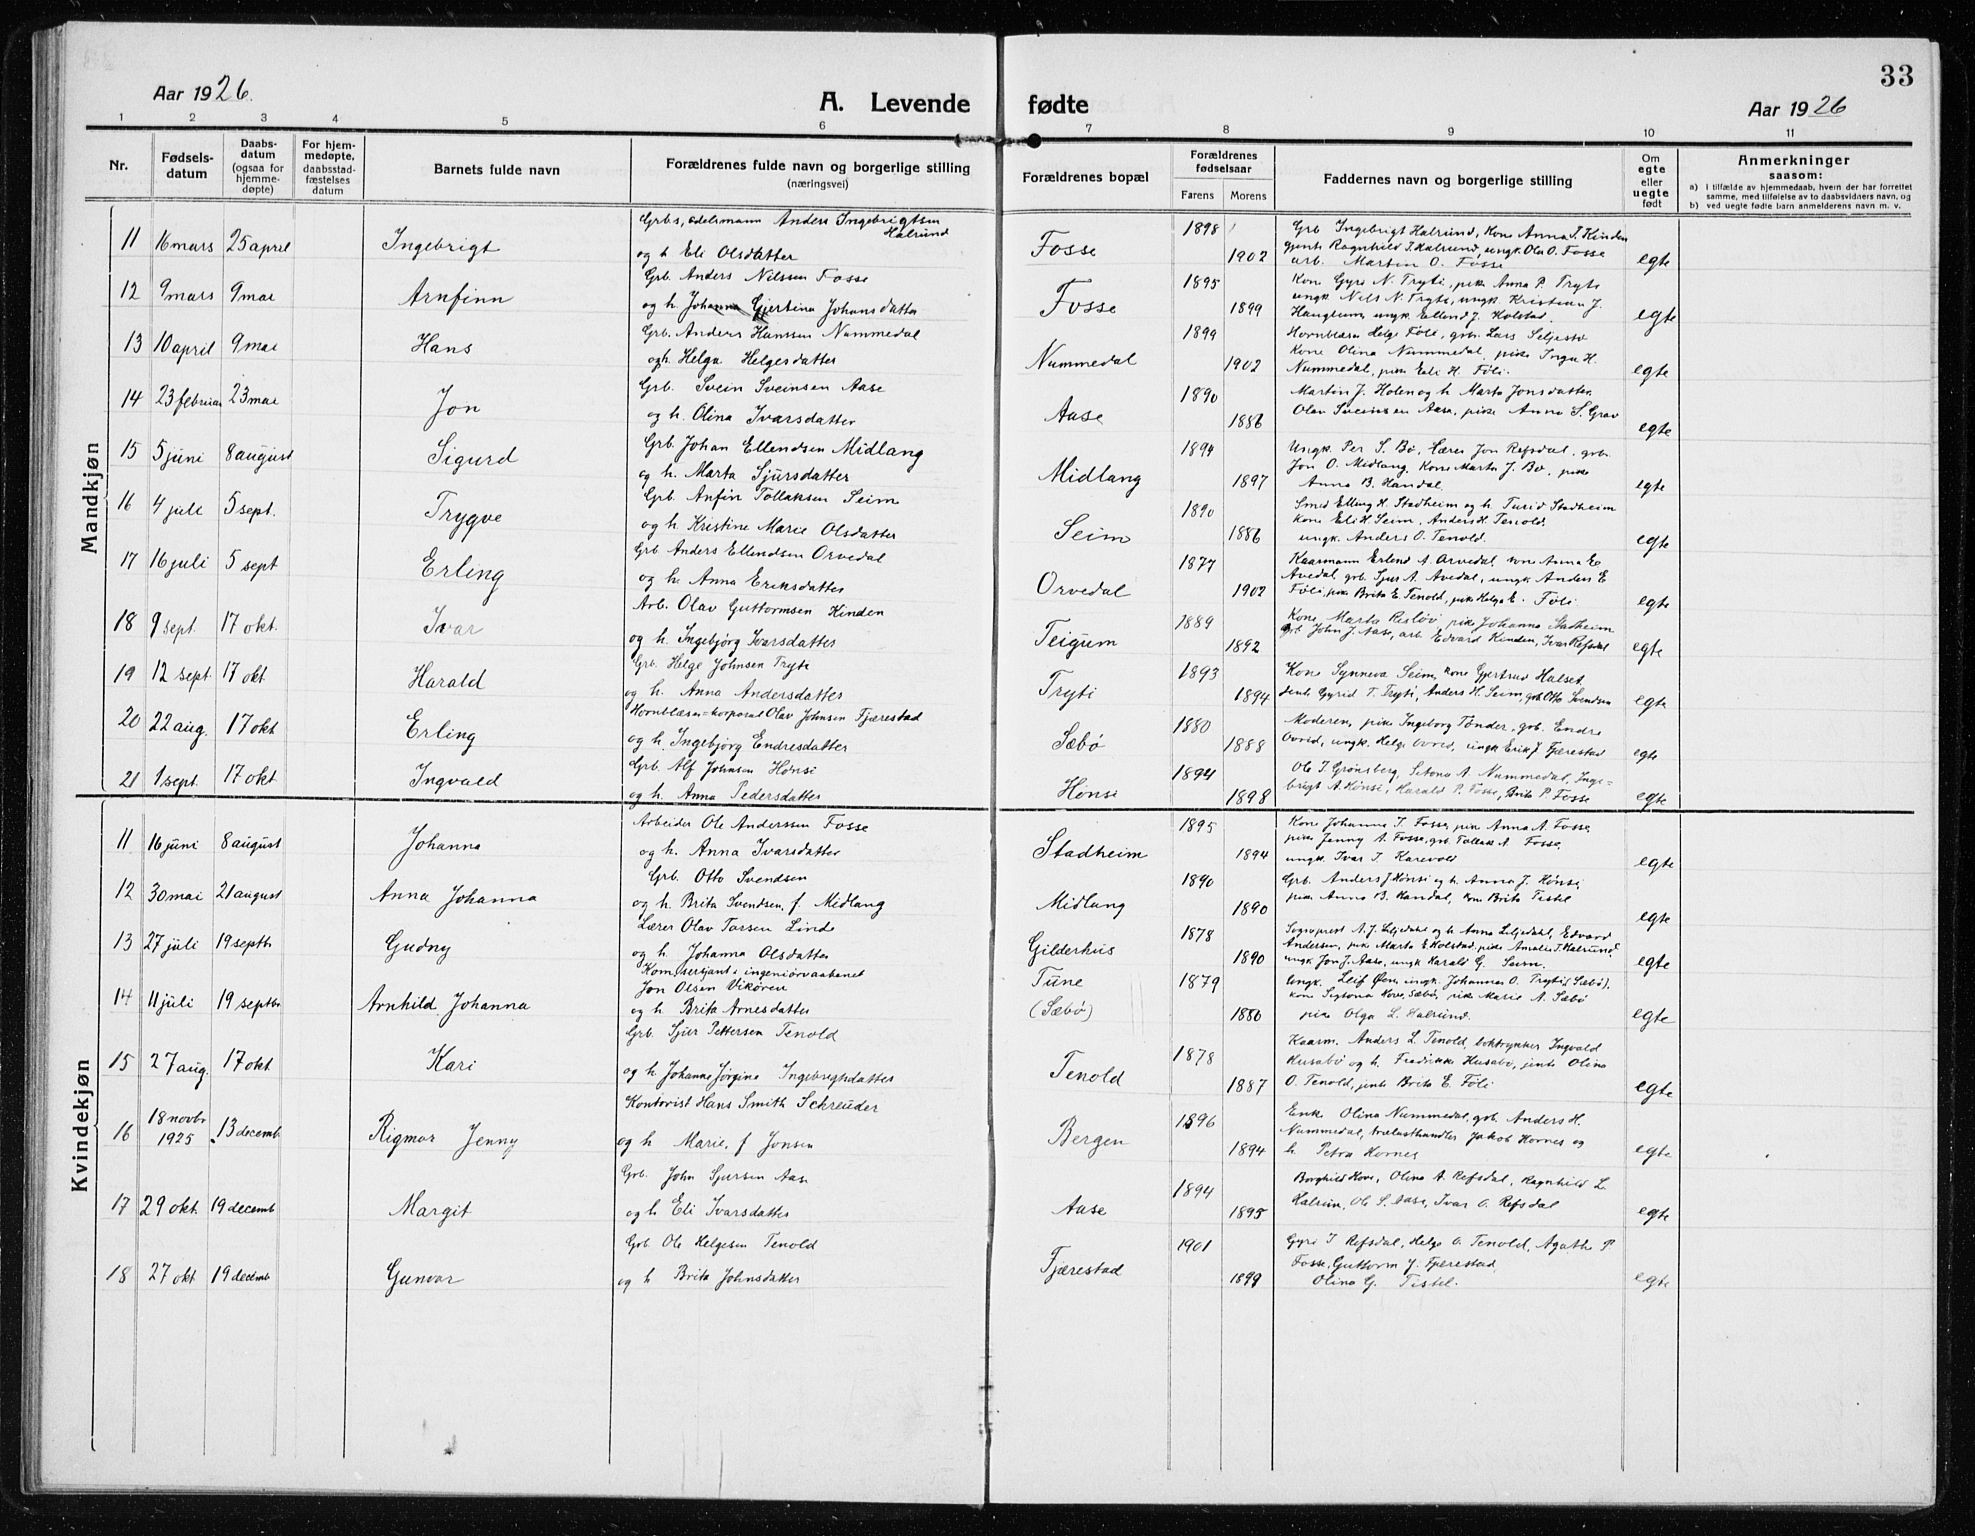 33
Aar 1926.
A. Levende fødte
Aar 1926
1 2 3 4 5 6 7 8 9 10 11
Nr.
Fødselsdatum
Daabsdatum (ogsaa for hjemmedøpte)
For hjemmedøpte, daabsstadfæstelses datum
Barnets fulde navn
Forældrenes fulde navn og borgerlige stilling (næringsvei)
Forældrenes bopæl
Forældrenes fødselsaar
Farens Morens
Faddernes navn og borgerlige stilling
Om egte eller uegte født
Anmerkninger saasom:
a) i tilfælde av hjemmedaab, hvem der har forrettet samme, med tilføielse av to daabsvidners navn, og
b) ved uegte fødte barn anmelderens navn m. v.
Mandkjøn
11 16 mars 25 april Ingebrigt
Grbs, ødelsmann Anders Ingebrigtsen Halsund
og h. Eli Olsdatter
Fosse 1898 1902
Grb Ingebrigt Halrund, Kone Anna I. Hinden
gjent. Ragnhild I. Halrund, ungk. Ola O. Fosse
arb. Martin O. Fosse
egte
12 9 mars 9 mai Arnfinn
Grb. Anders Nilssen Fosse
og h. Johanna Gjertine Johansdatter
Fosse 1895 1899
Kone Gyri N. Tryti, pike Anna P. Tryti
ungk. Nils N. Tryti, ungk. Kristian J.
Haugtun, ungk. Ellend J. Holstad.
egte
13 10 april 9 mai Hans
Grb. Anders Hanssen Nummedal
og h. Helga Helgesdatter
Nummedal 1899 1902
Hornblæser Helge Føli, grb. Lars Seljestø
Kone Olina Nummedal, pike Inga H.
Nummedal, pike Eli H. Føli.
egte
14 23 februar 23 mai Jon
Grb. Svein Sveinsen Aase
og h. Olina Ivarsdatter
Aase 1890 1886
Martin J. Holen og h. Marta Jonsdatter.
Olav Sveinsen Aase, pike Anna S. Grov
egte
15 5 juni 8 august Sigurd
Grb. Johan Ellendsen Midlang
og h. Marta Sjursdatter
Midlang 1894 1897
Ungk. Per S. Bø, Lærer Jon Refsdal, grb.
Jon O. Midlang, Kone Marta J. Bø, pike
Anna B. Handal.
egte
16 4 juli 5 sept. Trygve
Grb. Anfin Tollaksen Seim
og h. Kristine Marie Olsdatter
Seim 1890 1886
Smed Elling H. Stadheim og h. Turid Stadheim
kone Eli H. Seim, Anders H. Tenold.
ungk. Anders O. Tenold.
egte
17 16 juli 5 sept Erling
Grb Anders Ellendsen Orvedal
og h. Anna Eriksdatter
Orvedal 1877 1902
Kaarmann Erlend A. Orvedal, kone Anna E
Avedal, grb. Sjur A. Avedal, ungk Anders E
Føli, pike Brita E. Tenold, pike Helga E. Føli
egte
18 9 sept. 17 okt. Ivar
Arb. Olav Guttormsen Hinden
og h. Ingebjørg Ivarsdatter
Teigum 1889 1892
Kone Marta Resløv, pike Johanna Stadheim
grb. John J. Aase, arb. Edvard Hinden, Ivar Refsdal
egte
19 12 sept. 17 okt. Harald
Grb. Helge Johnsen Tryti
og h. Anna Andersdatter
Tryti 1893 1894
Kone Synneva Seim, kone Gjertrud Halset,
jente Gyrid T. Tryti, Anders H. Seim, grb Otto Svendsen
egte
20 22 aug. 17 okt Erling
Hornblæser=korporal Olav Johnsen Fjærestad
og h. Ingebjørg Endresdatter
Sæbø 1880 1888
Moderen, pike Ingeborg Tønder, grb. Endre
Ovrid, ungk. Helge Ovrid, ungk Erik J Fjærestad
egte
21 1 sept. 17 okt. Ingvald
Grb. Alf Johnsen Hønsi
og h. Anna Pedersdatter
Hønsi 1894 1898
Ole T. Grønsberg, Sitona A. Nummedal, Inge=
brigt A. Hønsi, Harald P. Fosse, Brita P. Fosse
egte
Kvindekjøn
11 16 juni 8 august Johanna
Arbeider Ole Anderssen Fosse
og h. Anna Ivarsdatter
Stadheim 1895 1894
Kone Johanna T. Fosse, pike Anna A. Fosse,
pike Jenny A. Fosse, grb. Tollak A. Fosse,
ungk. Ivar T. Karevold
egte
12 30 mai 21 august Anna Johanna
Grb. Otto Svendsen
og h. Brita Svendsen, f. Midlang
Midlang 1890 1890
Grb. Anders J Hønsi og h. Anna J. Hønsi,
pike Anna B. Handal, kone Brita Tistel
egte
13 27 juli 19 septbr Gudny
Lærer Olav Torsen Linde
og h. Johanna Olsdatter
Gilderhus 1878 1890
Sogneprest A. J. Liljedahl og h Anna Liljedahl, Edvard
Andersen, pike Marta E Holstad, pike Amalie I. Halrund,
ungk Jon J. Aase, ungk Harald G. Seim.
egte
14 11 juli 19 septbr Arnhild Johanna
Kom.sersjant i ingeniørvaabenet
Jon Olsen Vikøren
og h. Brita Arnesdatter
Tune (Sæbø) 1879 1880
Ungk. Leif Øen, ungk. Johannes O. Tryti (Sæbø),
kone Sigtona Hove, Sæbø, pike Marie A. Sæbø
pike Olga L. Halrund.
egte
15 27 aug. 17 okt Kari
Grb. Sjur Pettersen Tenold
og h. Johanne Jørgine Ingebrigtsdatter
Tenold 1878 1887
Kaarm. Anders L. Tenold, boktrykker Ingvald
Husabø og h. Fredrikke Husabø, jente Olina
O. Tenold, jente Brita E. Føli
egte
16 18 novbr 1925 13 decemb Rigmor Jenny
Kontorist Hans Smith Schreuder
og h Marie, f Jonsen
Bergen 1896 1894
Enke Olina Nummedal, grb. Anders H.
Nummedal, trælasthandler Jakob Hornes og
h. Petra Hornes
egte
17 29 okt. 19 decemb Margit
Grb. John Sjursen Aase
og h Eli Ivarsdatter
Aase 1894 1895
Borghild Hove, Olina A. Refsdal, Ragnhild L.
Halrun, Ole S. Aase, Ivar O. Refsdal
egte
18 27 okt 19 decemb Gunvor
Grb. Ole Helgesen Tenold
og h Brita Johnsdatter
Fjærestad 1901 1899
Gyri I Refsdal, Helge O. Tenold, Agathe P
Fosse, Guttorm J. Fjærestad,
Olina G. Tistel.
egte